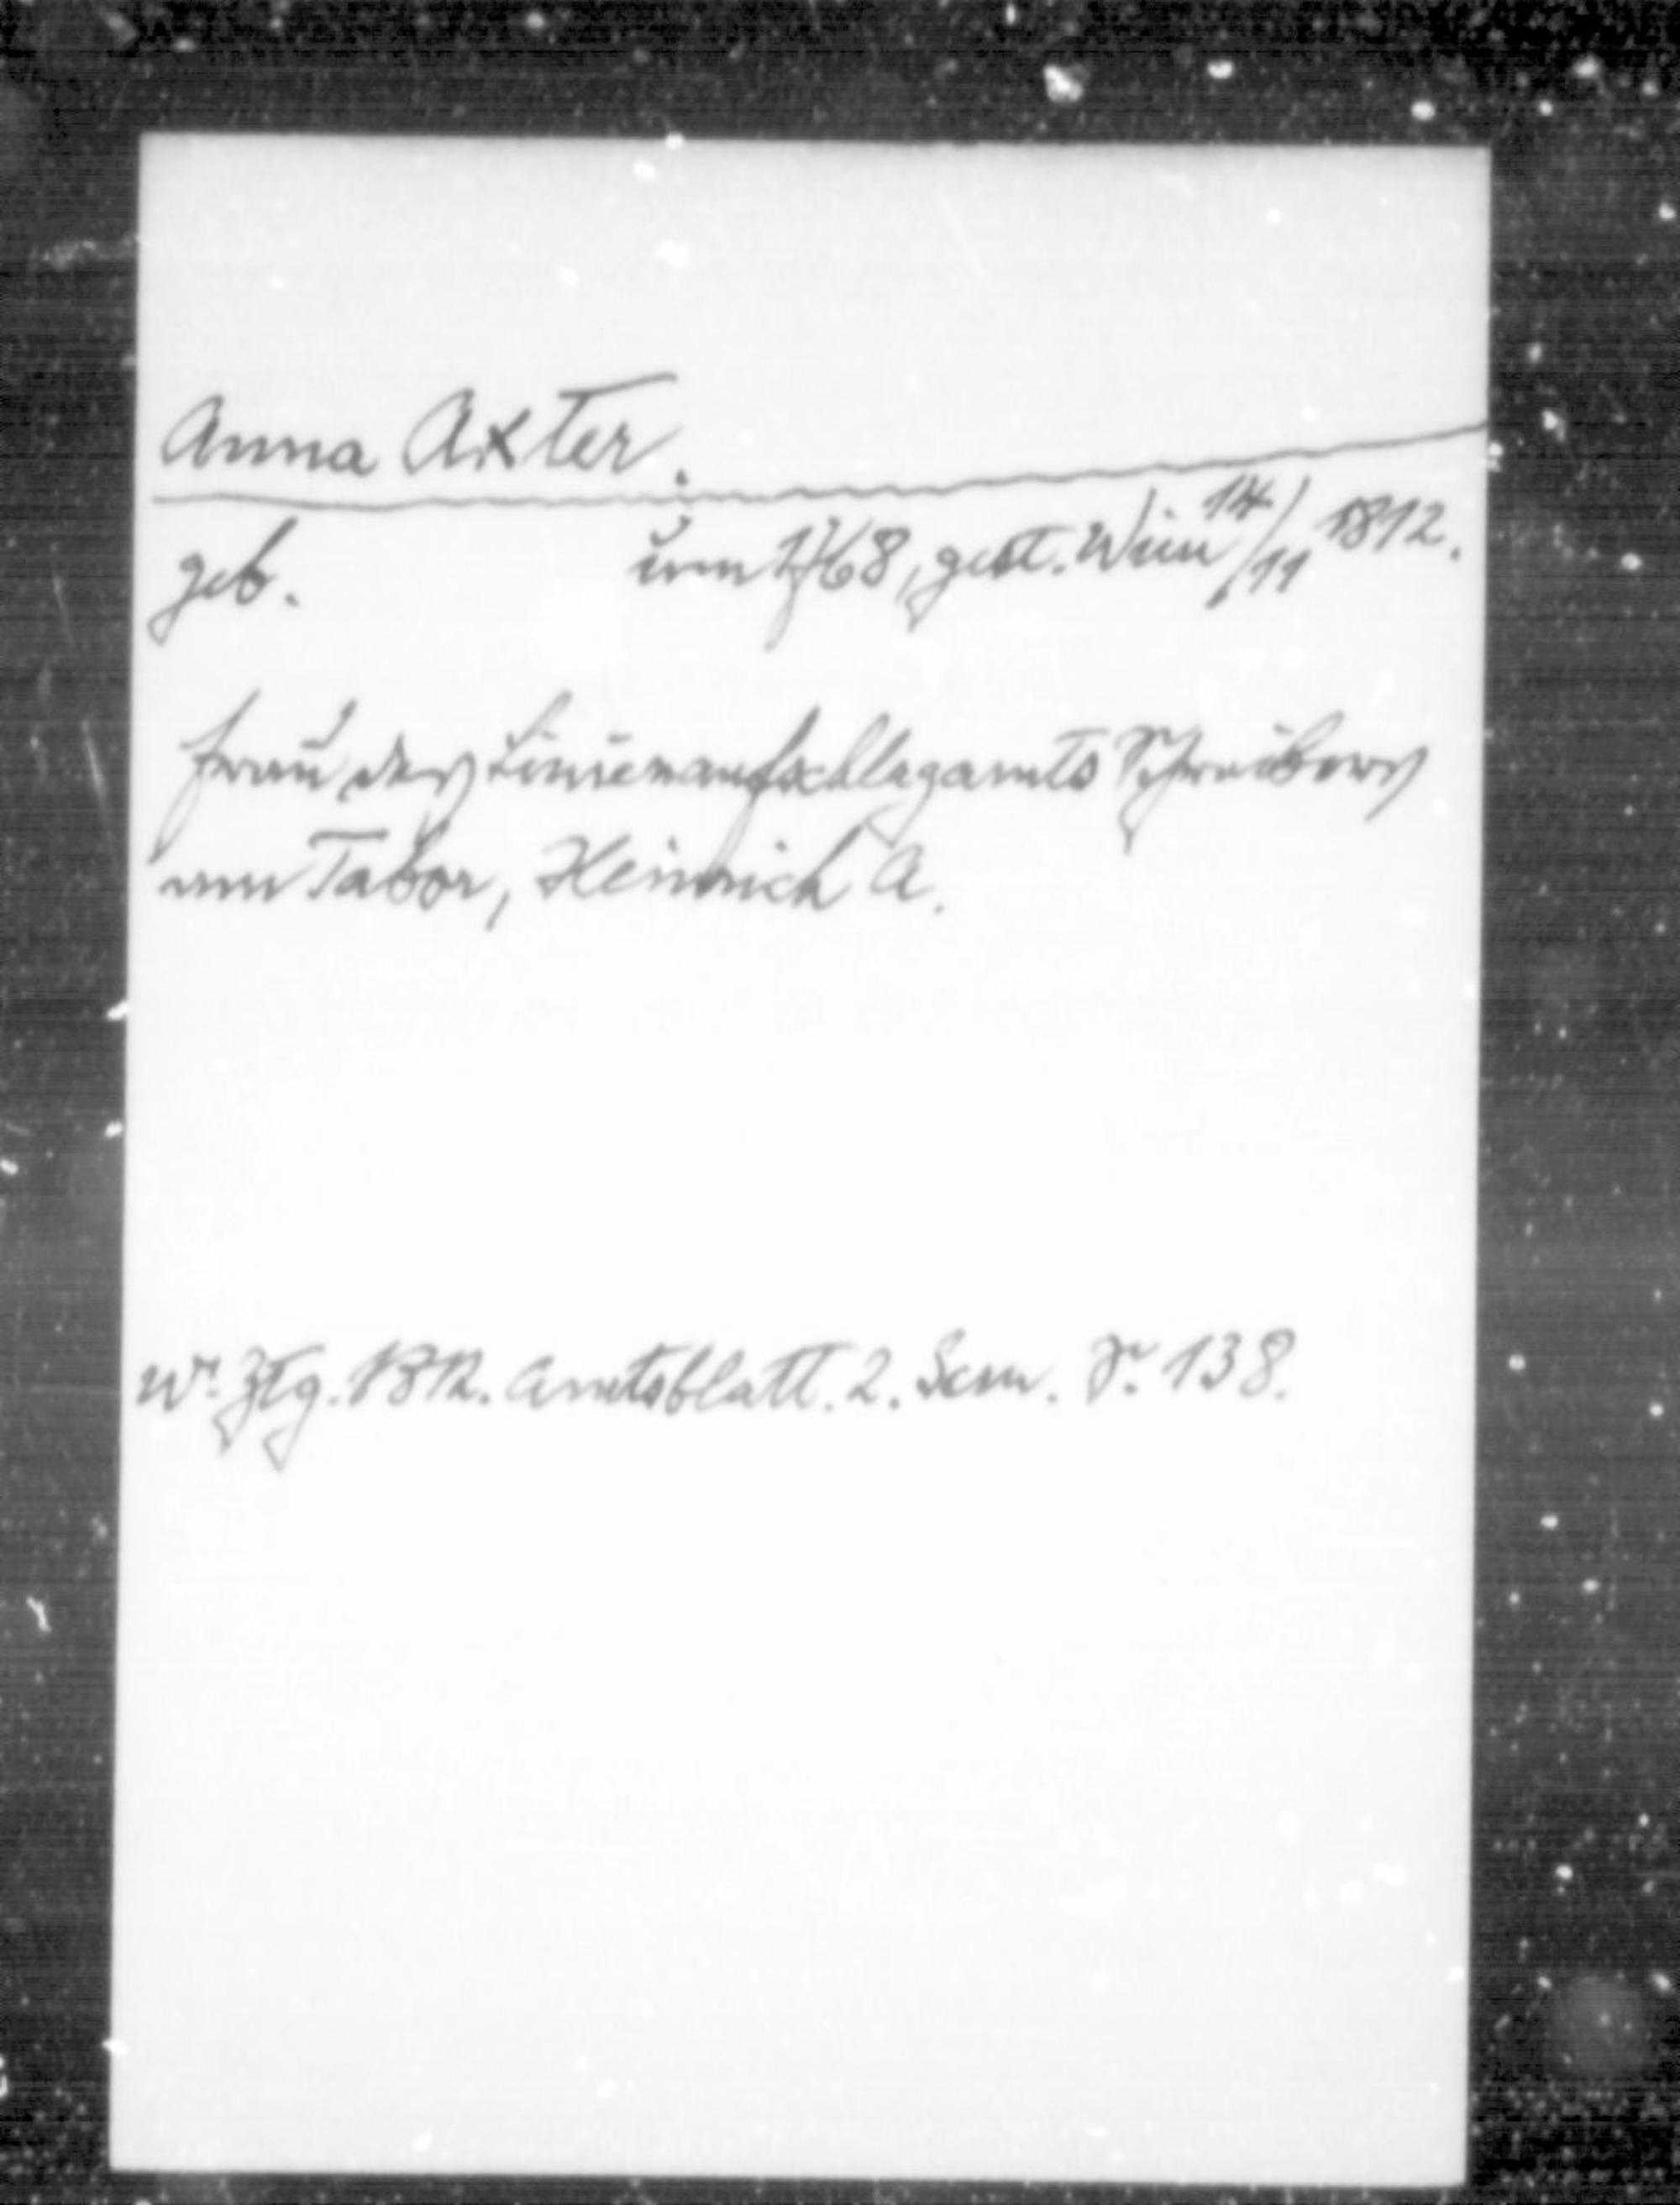 Anna Axter.
geb. um 1768, gest. Wien 14/11 1812.
Frau des Linienaufschlagamts Schreibers
am Tabor, Heinrich A.
Wr. Ztg. 1812. Amtsblatt. 2. Sem. S. 138.